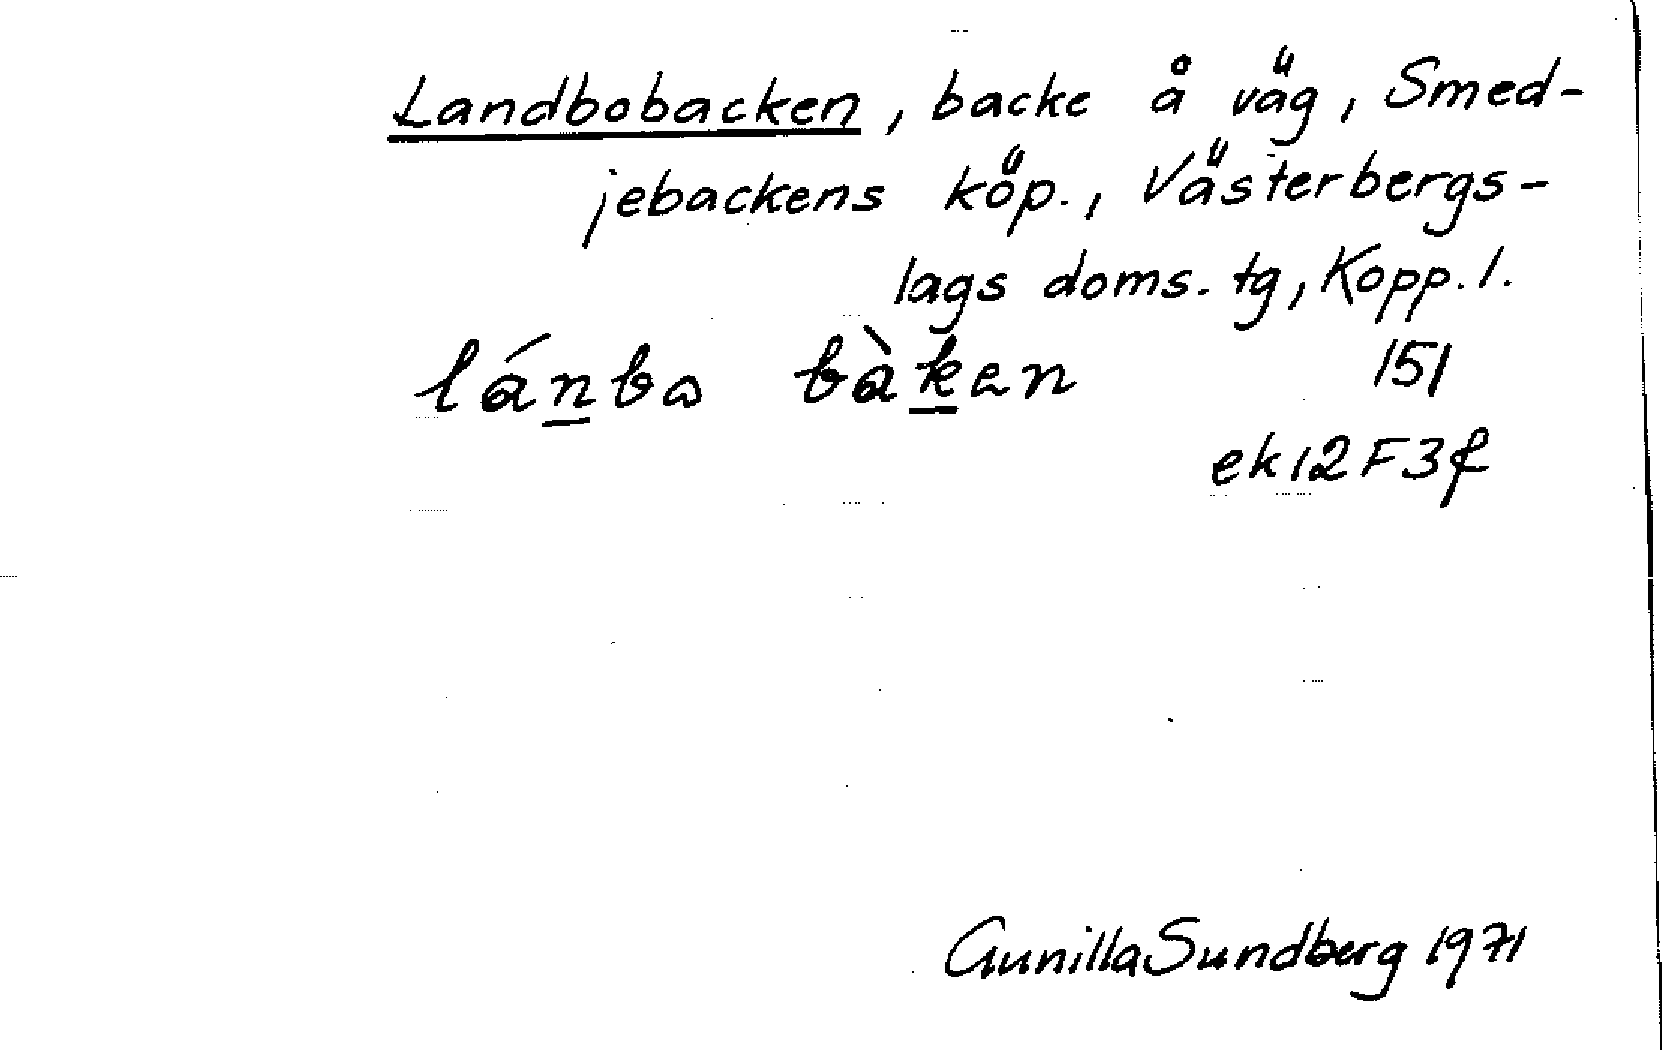 Landbobacken, backe å väg, Smed-
jebackens köp., Västerbergs-
lags doms. tg, Kopp. l.
lánbɷ bàken 151
ek 12F3f
Gunilla Sundberg 1971